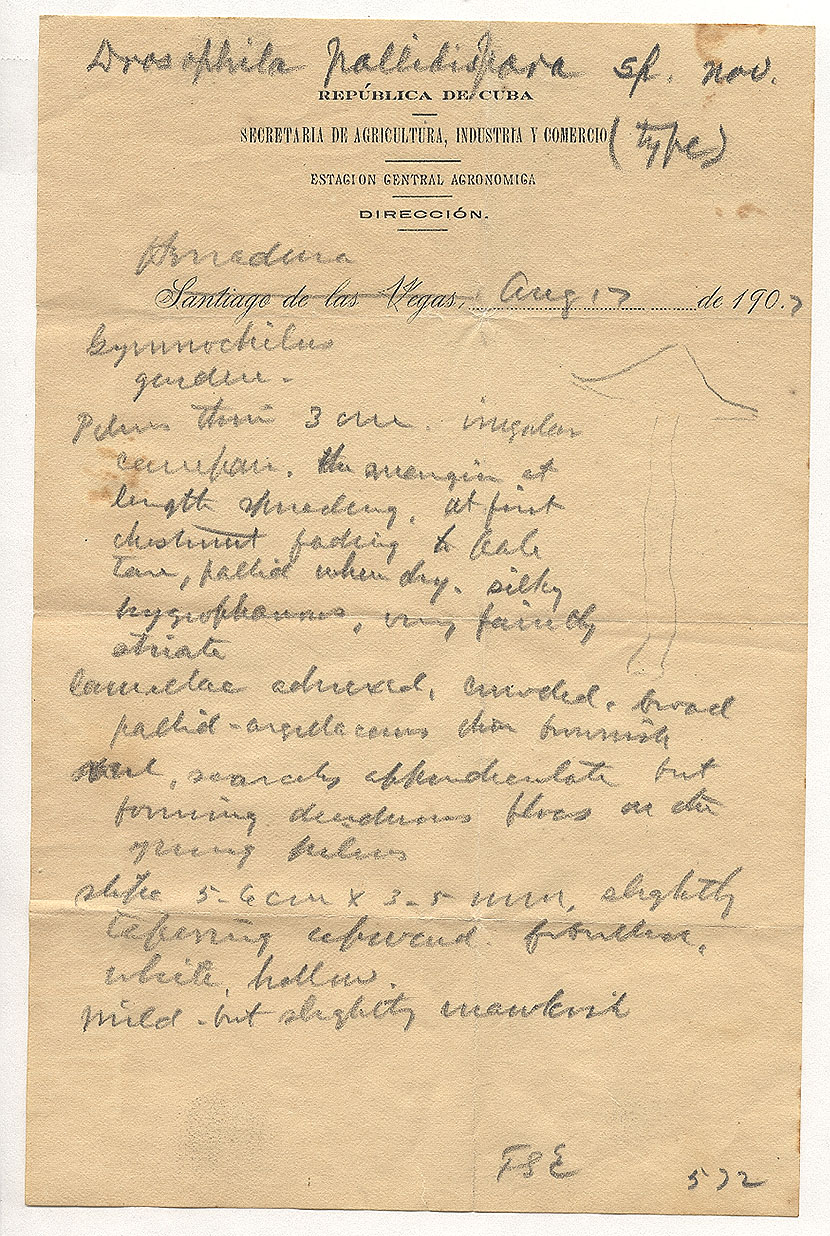 Drosophila pallidispora sp. nov.
REPÚBLICA DE CUBA
SECRETARIA DE AGRICULTURA, INDUSTRIA Y COMERCIO (type)
ESTACION CENTRAL AGRONOMICA
DIRECCIÓN.
Herradura
Santiago de las Vegas, Aug 17 de 1907
Gymnochilus
Pileus thin 3 cm. irregular
campan. the margin at
length spreading, at first
chestnut fading to pale
tan, pallid when dry. silky
hygrophanous, very faintly
striate
lamellae adnexed, crowded, broad
pallid-argillaceous then brownish
veil, scarcely appendiculate but
forming deciduous flocs on the
young pileus
stipe 5-6 cm x 3-5 mm, slightly
tapering upward. fibrillose,
white, hollow.
Mild - but slightly mawkish
FSE 572